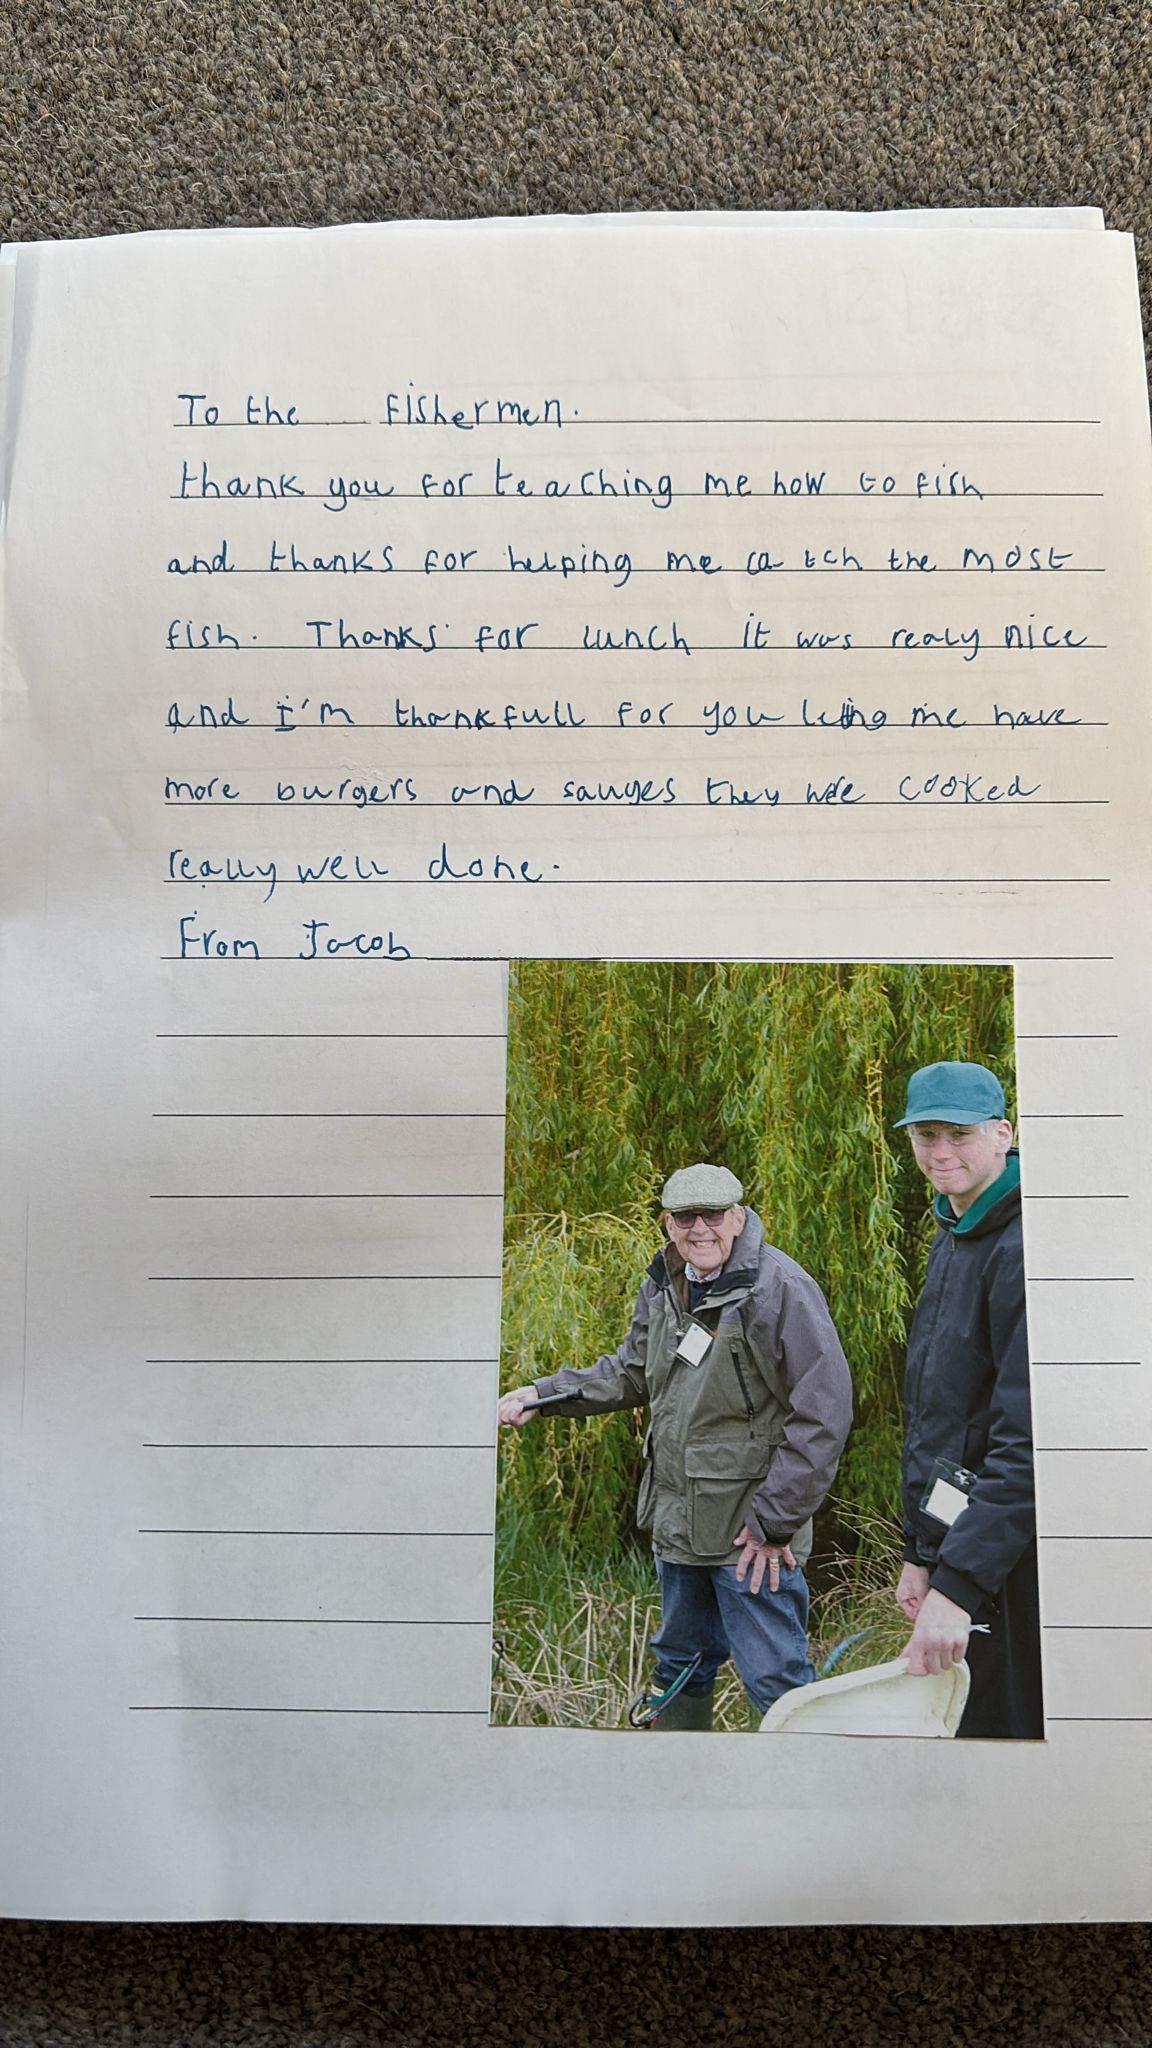 To the fishermen.
thank you for teaching me how to fish
and thanks for helping me catch the most
fish. Thanks for lunch it was realy nice
and I'm thankfull for you leting me have
more burgers and sauges they were cooked
really well done.
From Jacob